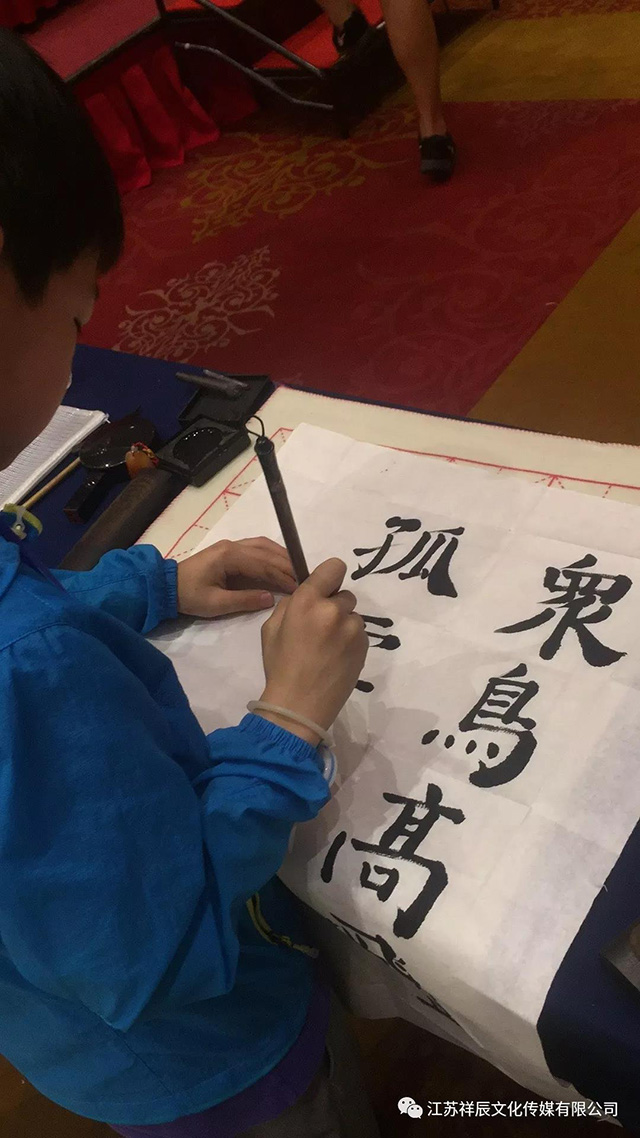 眾鳥高飛
孤
江苏祥辰文化传媒有限公司